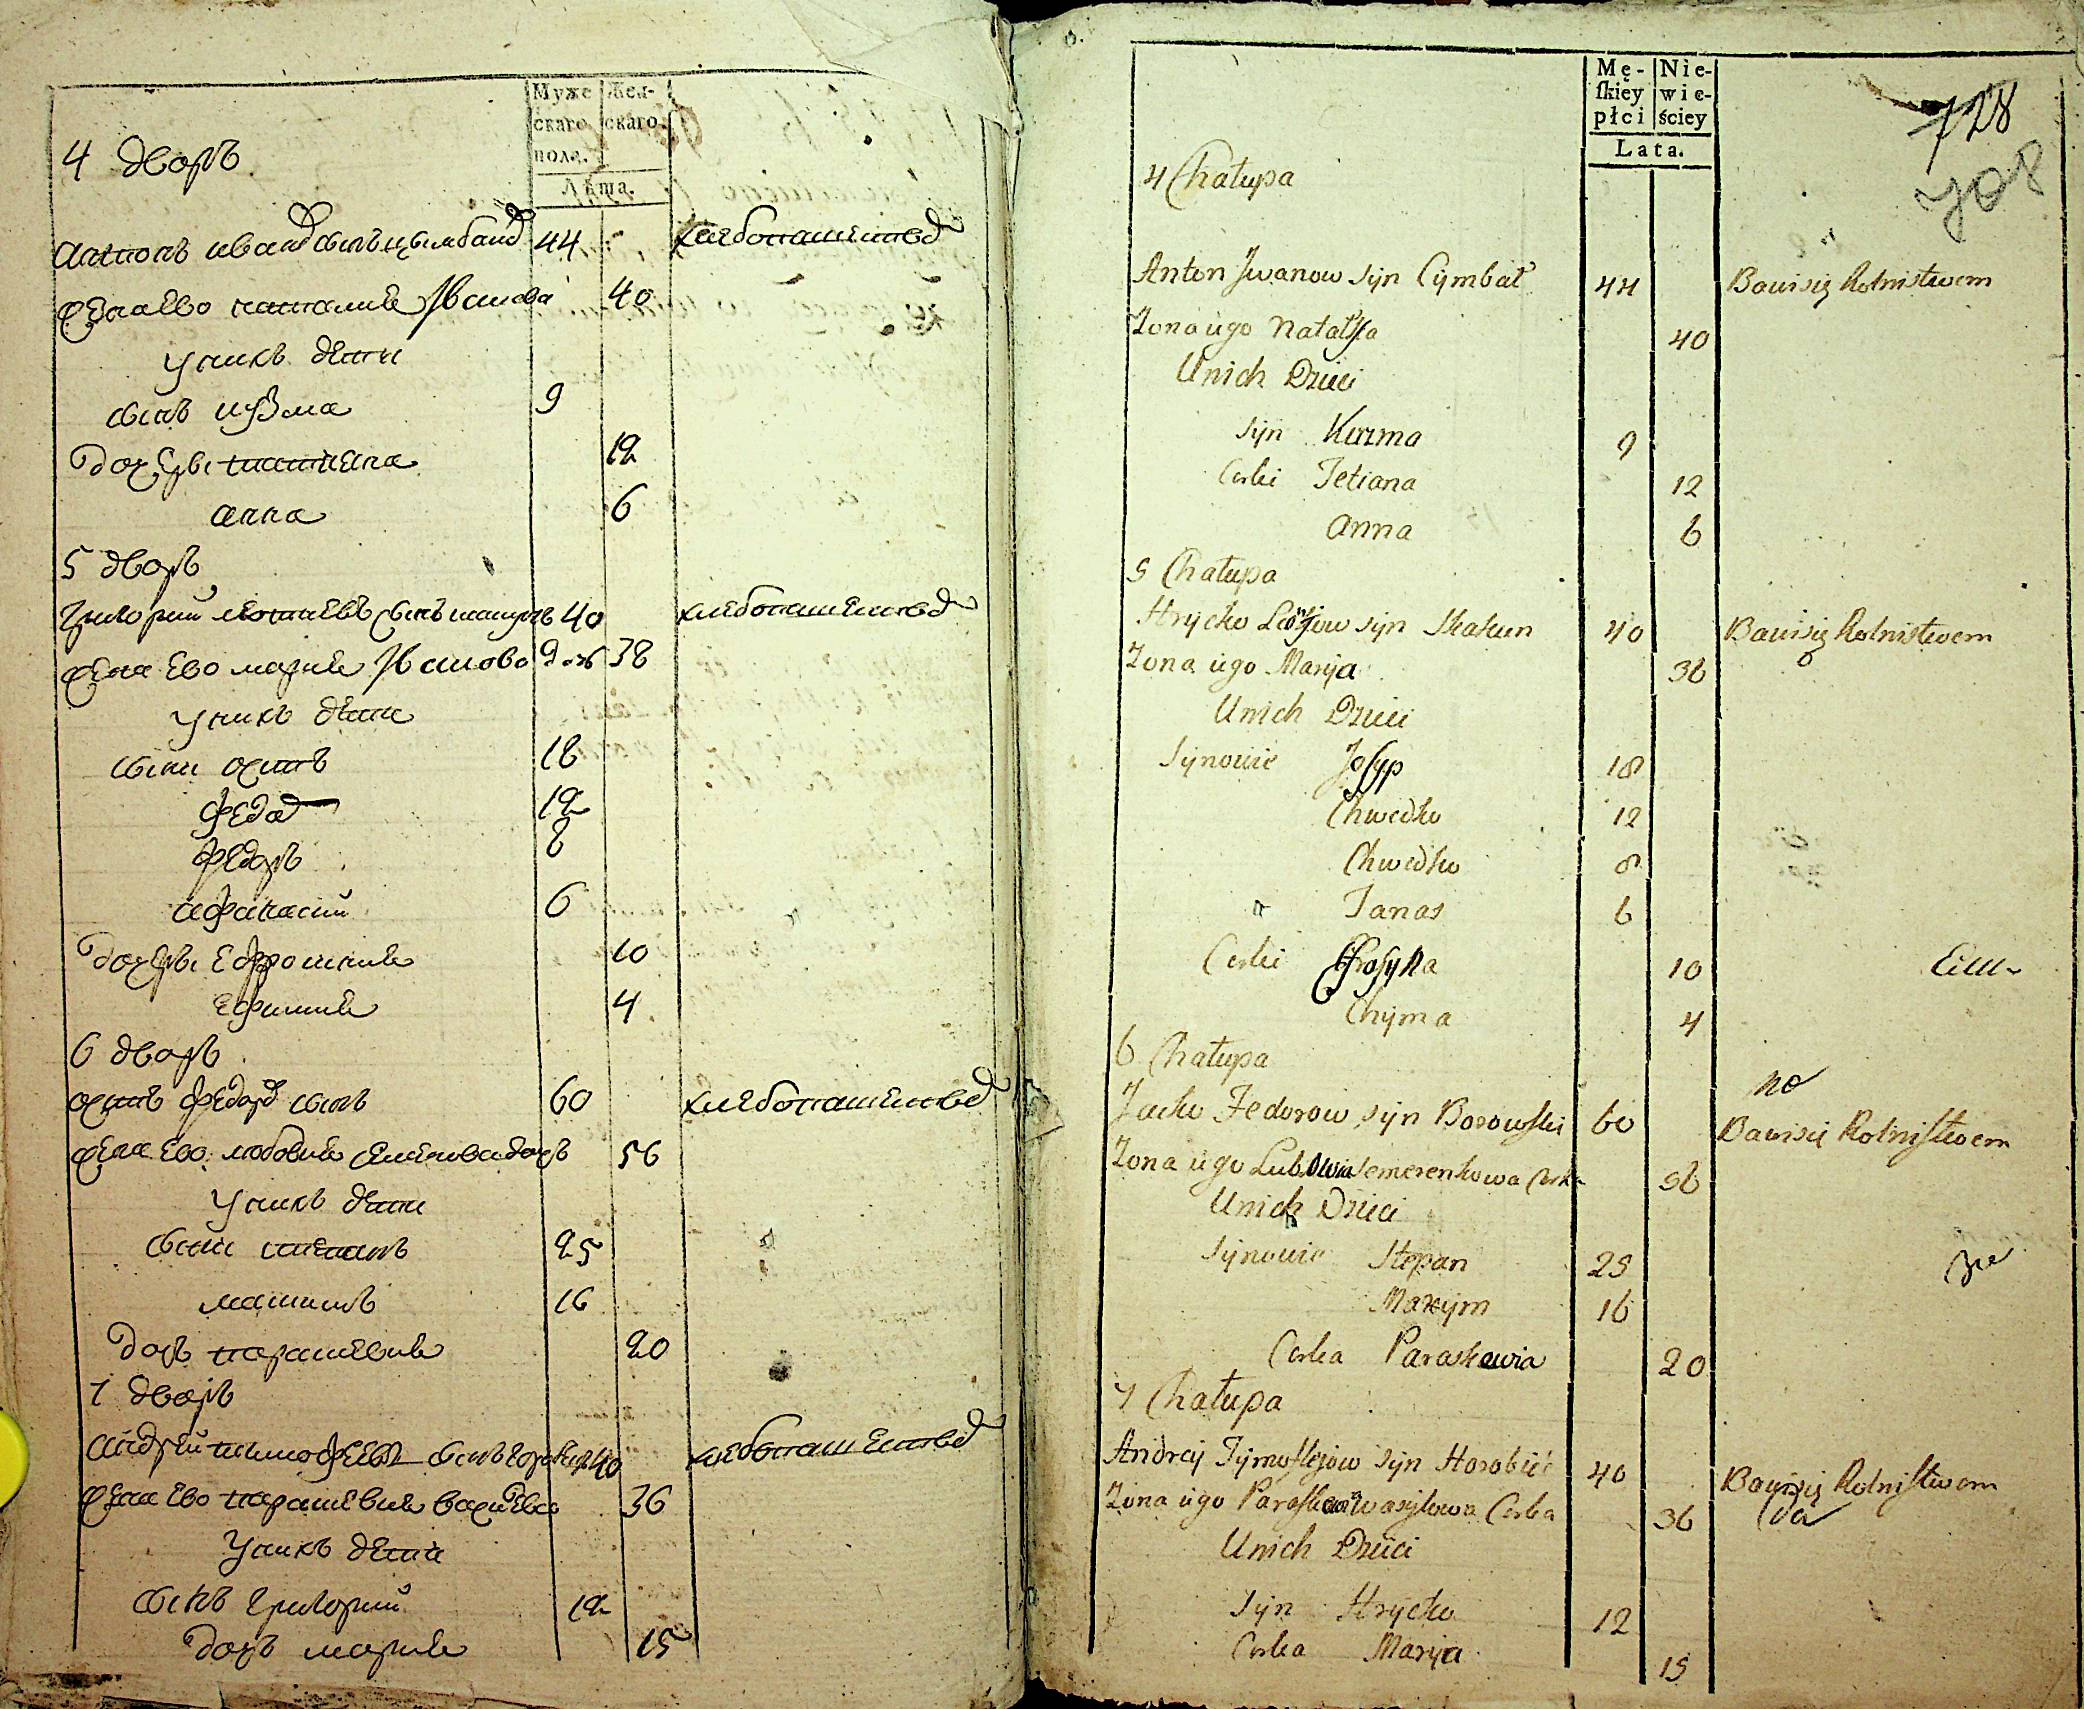 Муже
скаго
пола.
Жен-
скаго.
Лѣта.
4 дворъ
Антонъ иванов сынъ цымбал 44 хлебопашеством
жена ево наталия Иванова 40
у них дети
сынъ кузма 9
дочери татиена 12
анна 6
5 дворъ
григорий сынъ 40 хлебопашеством
жена ево мария Иванова доч 38
у нихъ дети
сыни осипъ 18
федор 12
федоръ 8
афанасий 6
дочери ефросиния 10
ефимия 4
6 дворъ
осипъ федоров сынъ 60 хлебопашеством
жена ево любовия дочь 56
у нихъ дети
сыни степанъ 25
максимъ 16
дочь парашевия 20
7 дворъ
андрей тимофеевъ сынъ 40 хлебопашеством
жена ево парашевия 36
У нихъ дети
сынъ григорий 12
дочь мария 15
Mę-
ſkiey
płci
Nie-
wie-
ściey
Lata.
728
708
4 Chałupa
Anton Jwanow syn Cymbał 44 Bawi się Rolnistwem
Zona iego Natalka 40
Unich Dzieci
syn Kuzma 9
Corki Tetiana 12
Anna 6
5 Chałupa
Hrycko syn Skakun 40 Bawi się Rolnistwem
Zona iego Marya 38
Unich Dzieci
Synowie Josyp 18
Chwedko 12
Chwedko 8
Tanas 6
Corki Efrosyna 10
Chyma 4
6 Chałupa
no
Jacko Fedorow syn Borowski 60 Bawi się Rolnistwem
Zona iego Lubowia Semerenkowa Corka 56
Unich Dzieci
Synowie Stepan 25
Maxym 16
Corka Paraskewia 20
7 Chałupa
Andrey Tymoftejow syn Horobieć 40 Bawi się Rolnistwem
Zona iego Paraskewia Wasylowa Corka 36
Unich Dzieci
Syn Hrycko 12
Corka Marya 15